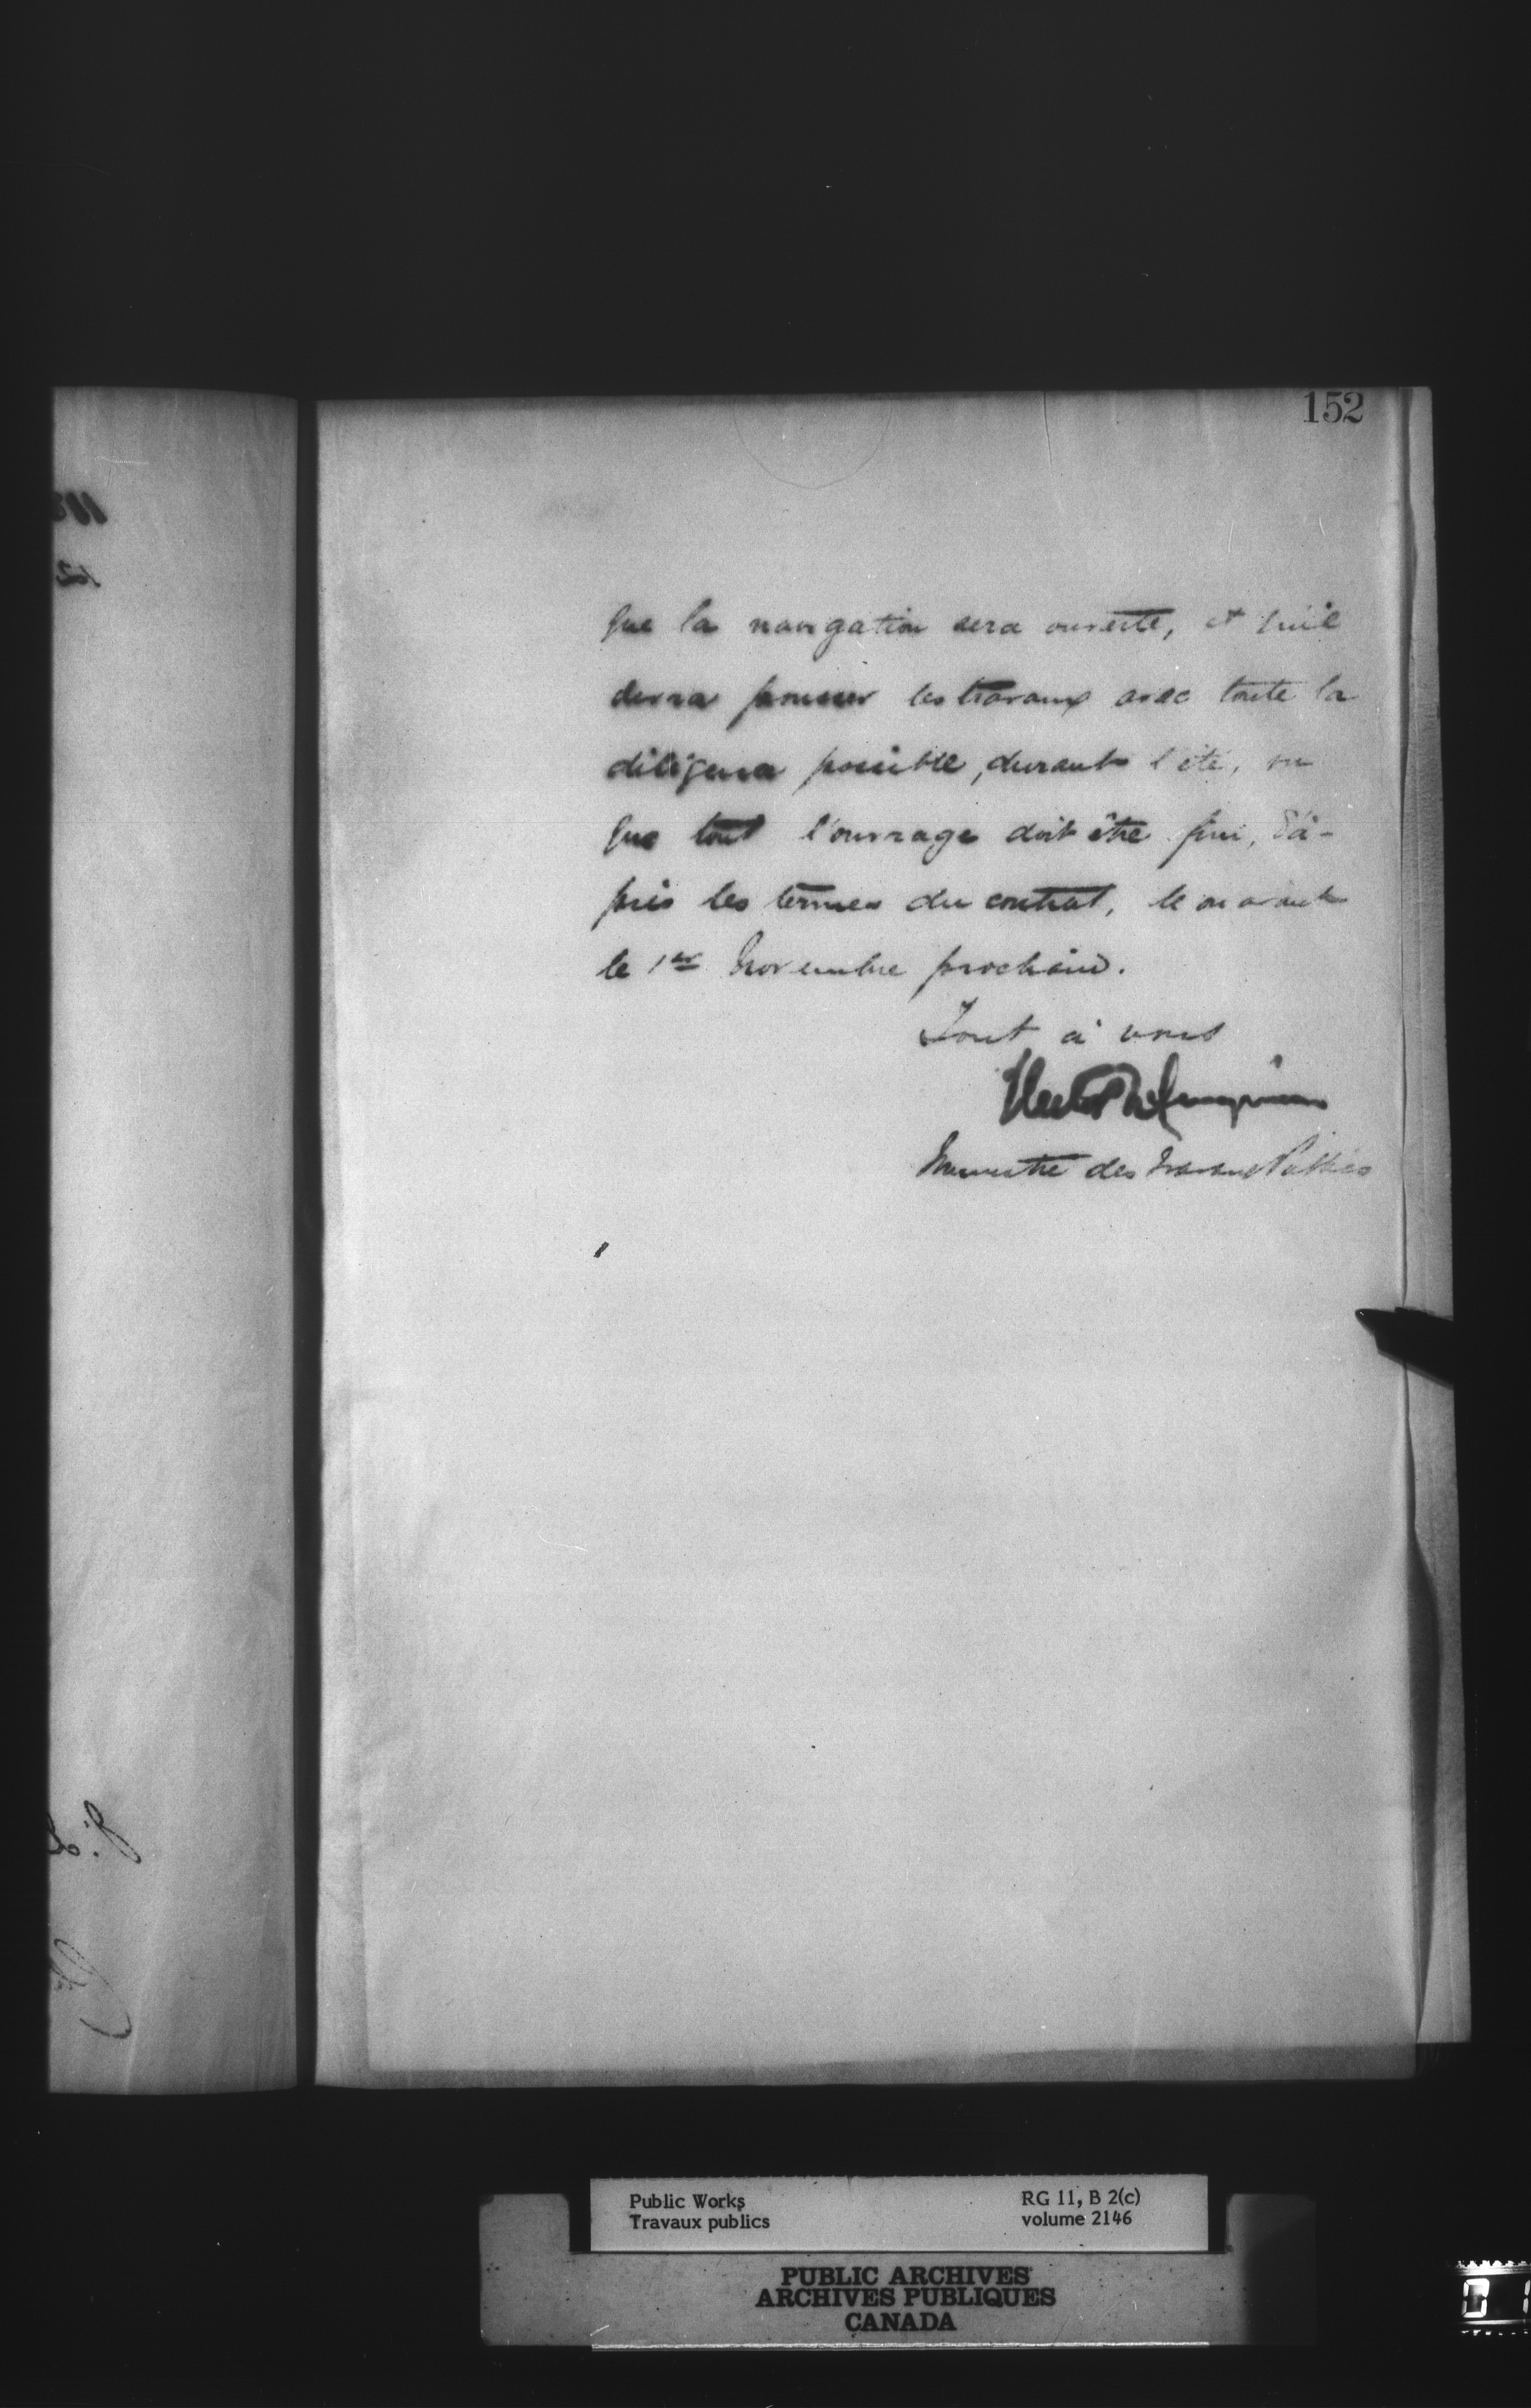 152
que la navigation sera ouverte, et qu'il
devra pousser les travaux avec toute la
diligence possible, durant l'été, vu
que tout l'ouvrage doit être fini, d'a-
près les termes du contrat, le ou avant
le 1er Novembre prochain.
Tout à vous
Hector L Langevin
Ministre des Travaux Publics
Public Works
Travaux publics
RG 11, B 2(c)
volume 2146
PUBLIC ARCHIVES
ARCHIVES PUBLIQUES
CANADA